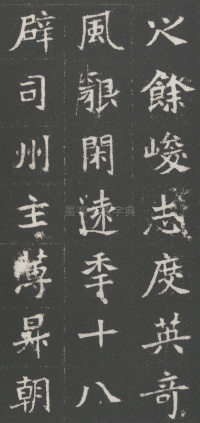 之餘峻志度英奇
風貌閑遠年十八
辟司州主薄昇朝